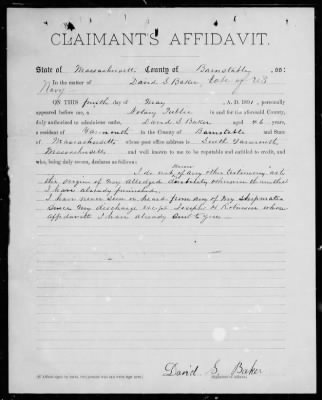 CLAIMANT'S AFFIDAVIT.
State of Massachusetts County of Barnstable, ss:
In the matter of David S. Baker, late of U.S.
Navy
ON THIS fourth day of May, A. D. 1891, personally
appeared before me, a Notary Public in and for the aforesaid County,
duly authorized to administer oaths, David S Baker aged 46 years,
a resident of Yarmouth in the County of Barnstable and State
of Massachusetts whose post office address is South Yarmouth
Massachusetts and well known to me to be reputable and entitled to credit, and
who, being duly sworn, declares as follows:
I do not know of any other testimony as to
the origin of my alledged disability otherwise than that
I have already furnished.
I have never seen or heard from any of my shipmates
since my discharge except Joseph H Robinson whose
affidavit I have already sent to you
David S. Baker